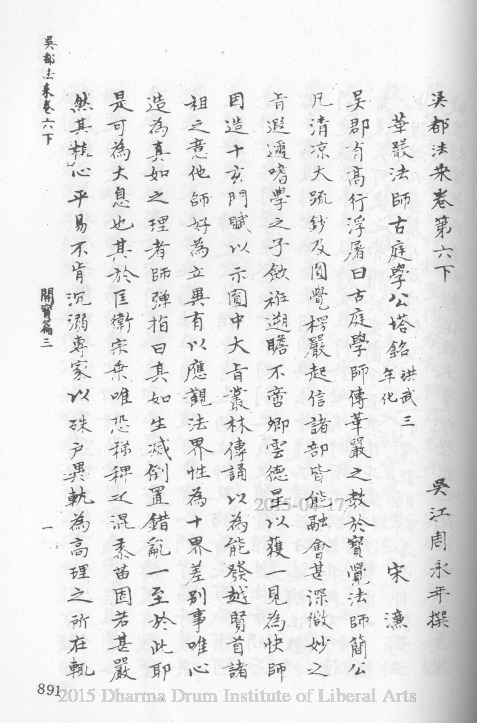 吳都法乘卷第六下
吳江周永年撰
華嚴法師古庭學公塔銘 洪武三年化 宋濂
吳郡有高行浮屠曰古庭學師傳華嚴之教於寶覺法師簡公
凡清涼大疏鈔及圓覺楞嚴起信諸部皆能融會甚深微妙之
旨遐邇嗜學之子斂袵遡瞻不啻卿雲德星以獲一見為快師
因造十玄門賦以示圓中大旨叢林傳誦以為能發越賢首諸
祖之意他師好為立異有以應觀法界性為十界差別事唯心
造為真如之理者師彈指曰真如生滅倒置錯亂一至於此耶
是可為大息也其於匡衛宗乘唯恐稊稗之混黍苗固若甚嚴
然其核心平易不肯沉溺專家以殊戶異軌為高理之所在輒
吳都法乘卷六下
開寶篇三
一
891
2015-04-17
2015 Dharma Drum Institute of Liberal Arts